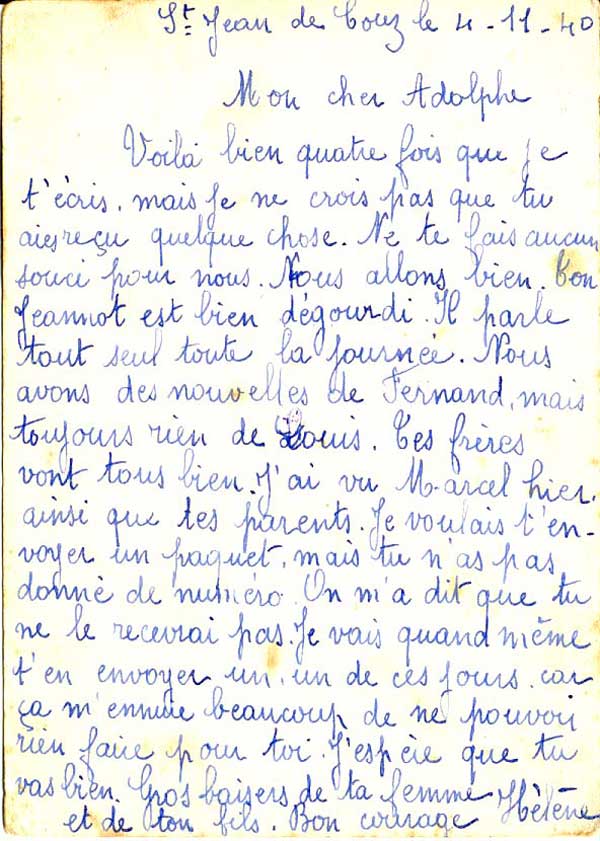 St Jean de Couz le 4-11-40
Mon cher Adolphe
Voilà bien quatre fois que je
t'écris, mais je ne crois pas que tu
aies reçu quelque chose. Ne te fais aucun
souci pour nous. Nous allons bien. Ton
Jeannot est bien dégourdi. Il parle
tout seul toute la journée. Nous
avons des nouvelles de Fernand, mais
toujours rien de Louis. Tes frères
vont tous bien. J'ai vu Marcel hier,
ainsi que tes parents. Je voulais t'en-
voyer un paquet, mais tu n'as pas
donné de numéro. On m'a dit que tu
ne le recevrai pas. Je vais quand même
t'en envoyer un, un de ces jours, car
ça m'ennuie beaucoup de ne pouvoir
rien faire pour toi. J'espère que tu
vas bien. Gros baisers de ta femme Hélène
et de ton fils. Bon courage